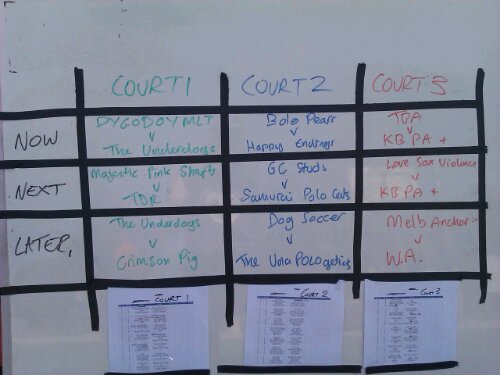 COURT 1 COURT 2 COURT 3
NOW
DYGODOYMLT
V
The Underdogs
Bolo Pears
V
Happy Endings
TBA
V
KBPA +
NEXT
Majestic Pink Shafts
V
TDR
GC Studs
V
Samurai Polo Cats
Love Sox Violence
V
KBPA +
LATER,
The Underdogs
V
Crimson Pig
Dog Soccer
V
The UnaPOLOgetics
Melb Anchor
V
W.A.
COURT 1
COURT 2
COURT 3